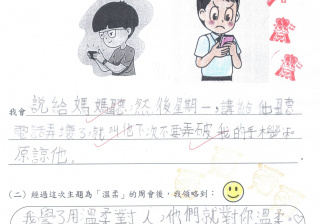 我會說給媽媽聽,然後星期一,講給他
電話弄壞了,就叫他下次不要弄破我的手
原諒他。
(二) 經過這次主題為「溫柔」的周會後,我領略到:
我學了用溫柔對人,他們就對你溫柔。